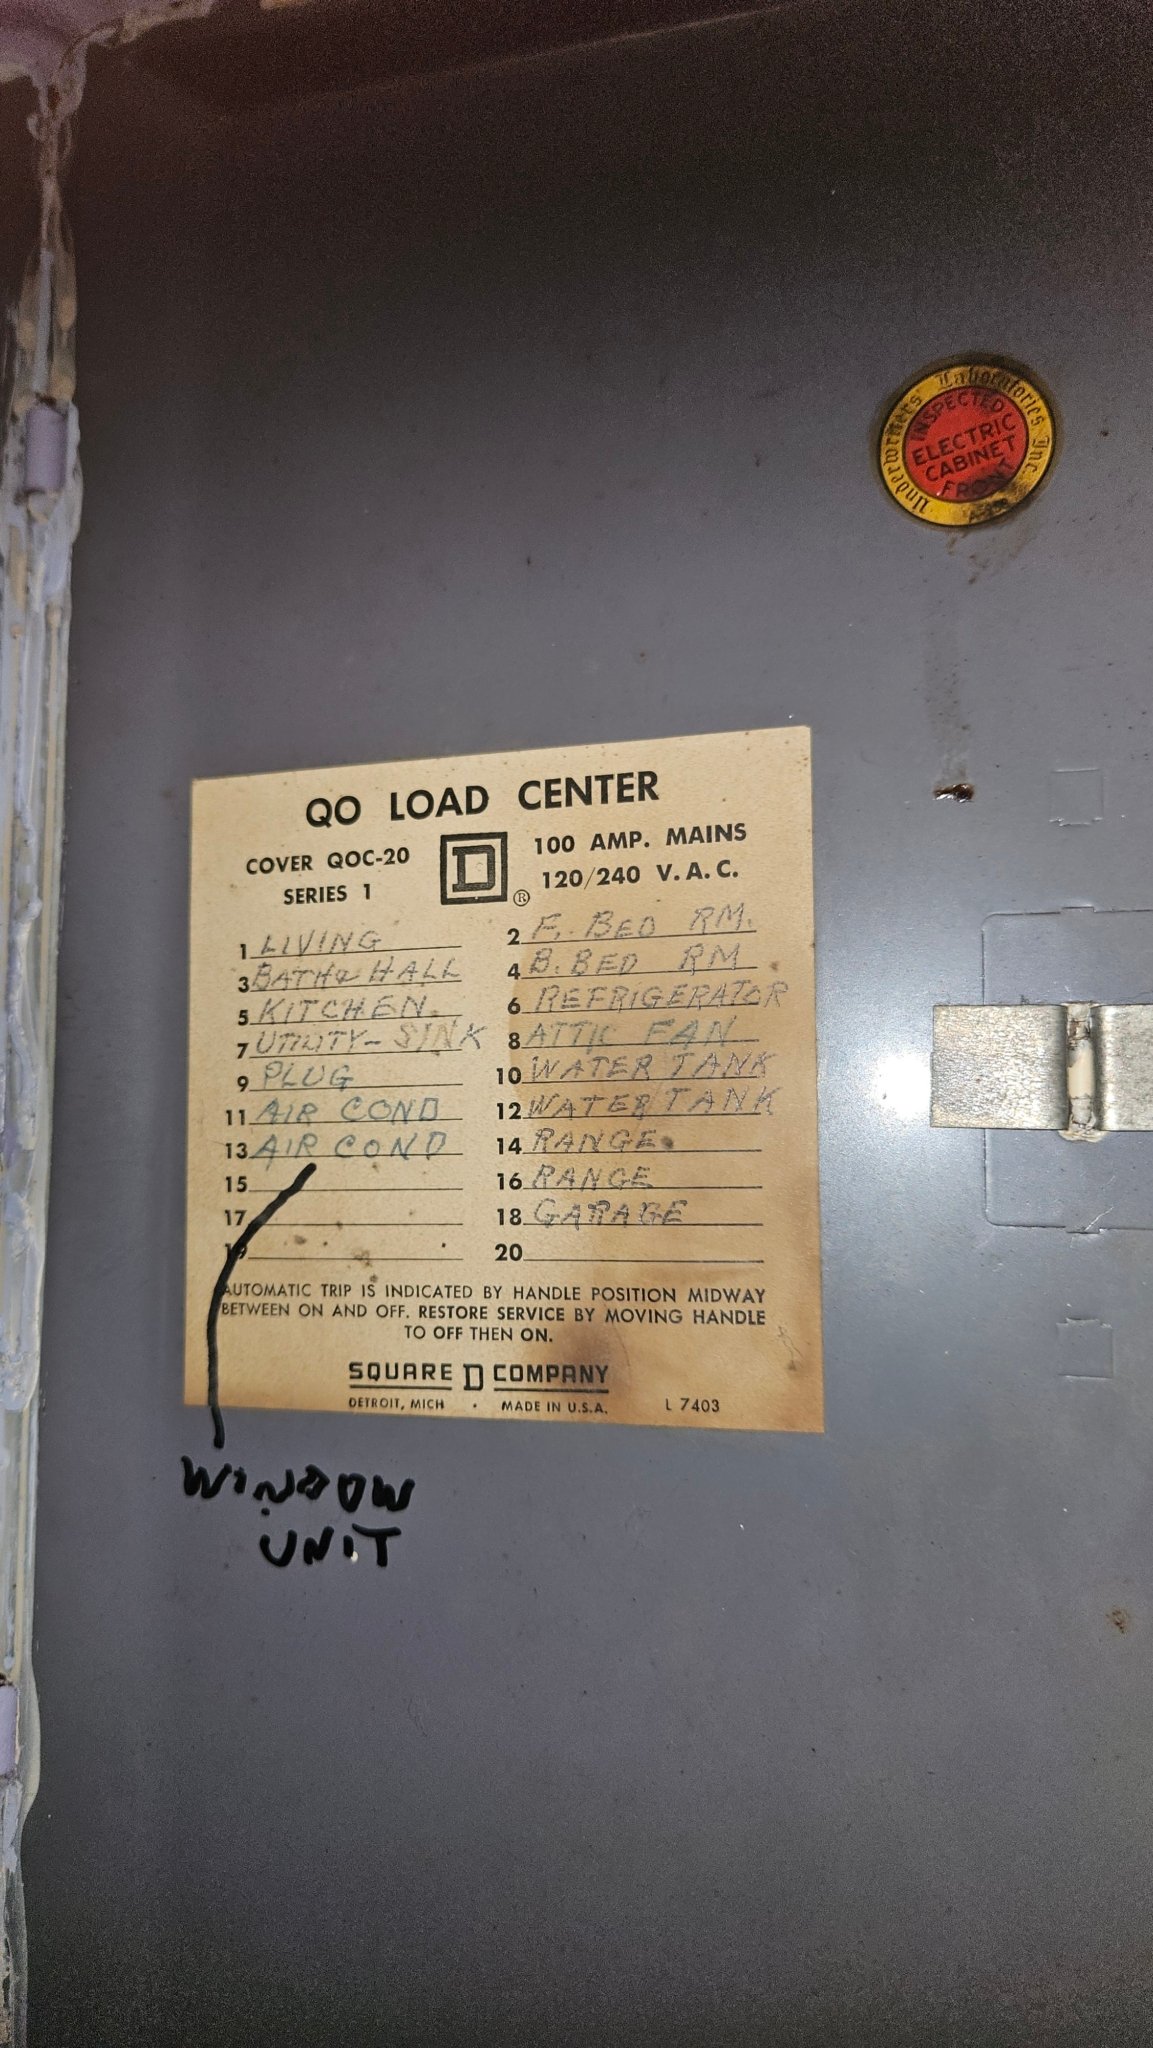 Underwriters' Laboratories Inc.
INSPECTED
ELECTRIC
CABINET
FRONT
QO LOAD CENTER
COVER QOC-20
SERIES 1
D ®
100 AMP. MAINS
120/240 V.A.C.
1 LIVING
2 F. BED RM.
3 BATH & HALL
4 B. BED RM
5 KITCHEN.
6 REFRIGERATOR
7 UTILITY- SINK
8 ATTIC FAN
9 PLUG
10 WATER TANK
11 AIR COND
12 WATER TANK
13 AIR COND
14 RANGE
15
16 RANGE
17
18 GARAGE
19
20
AUTOMATIC TRIP IS INDICATED BY HANDLE POSITION MIDWAY
BETWEEN ON AND OFF. RESTORE SERVICE BY MOVING HANDLE
TO OFF THEN ON.
SQUARE D COMPANY
DETROIT, MICH • MADE IN U.S.A. L 7403
WINDOW
UNIT